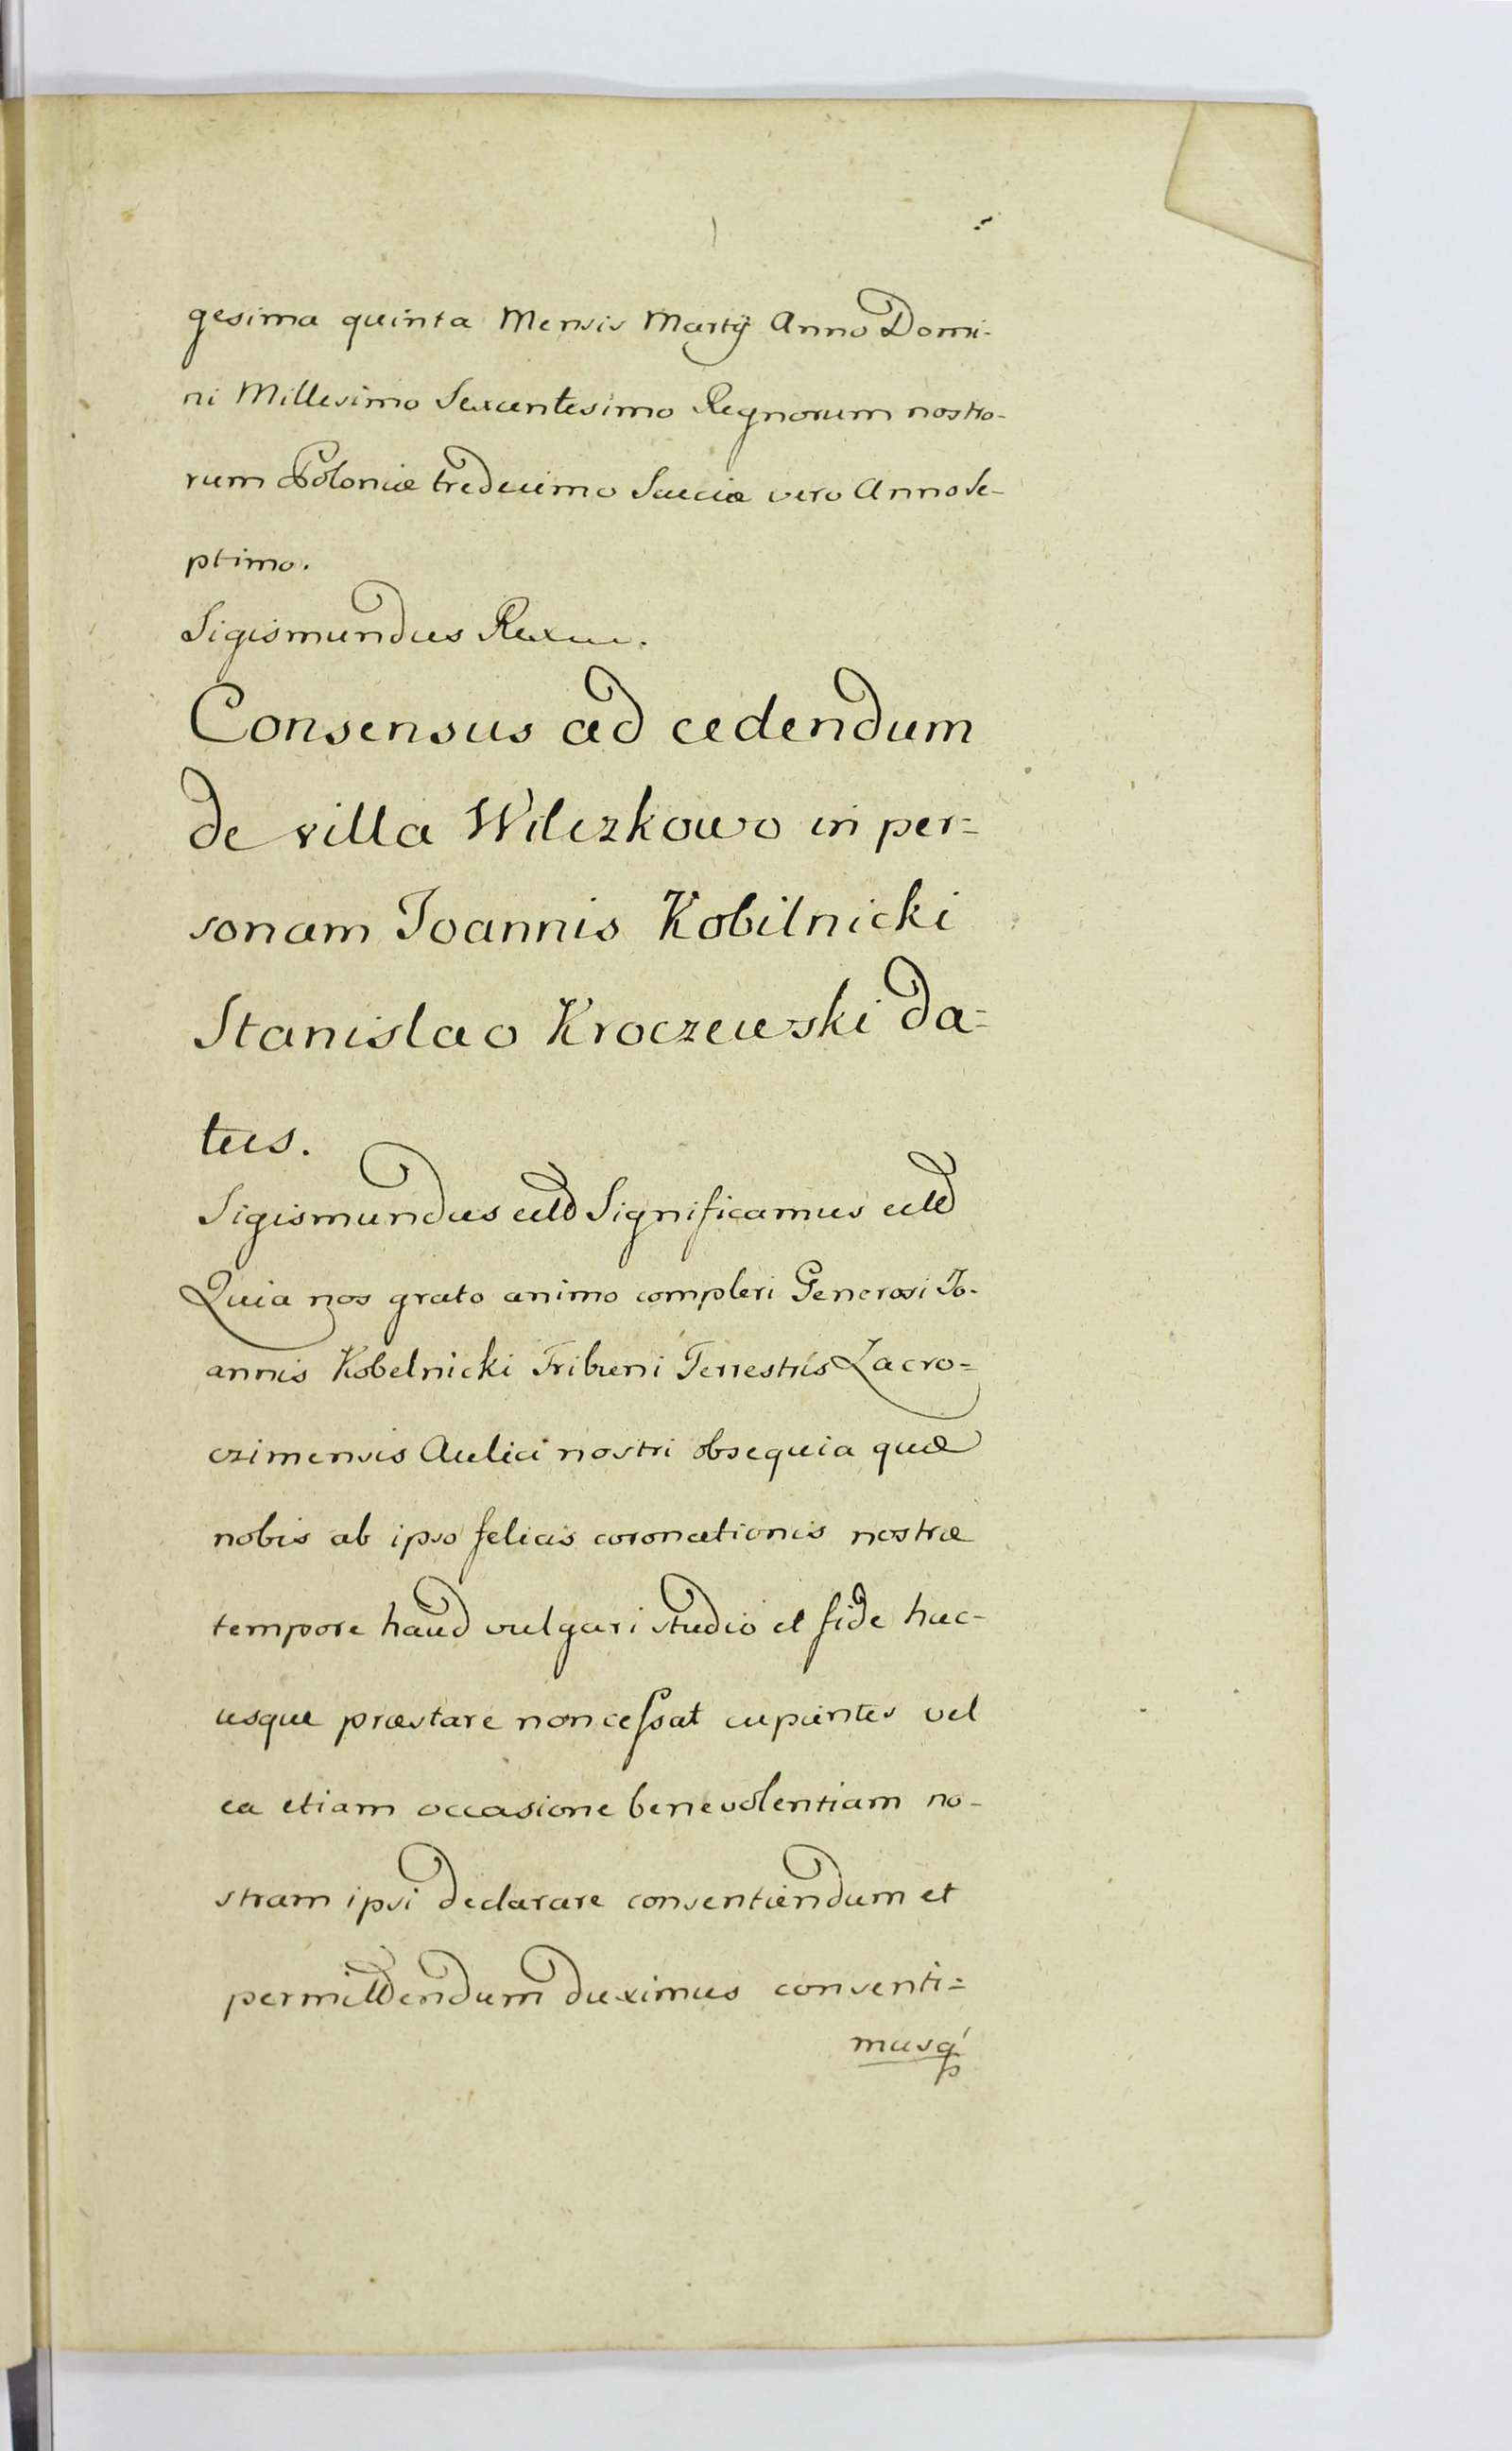 gesima quinta Mensis Martÿ Anno Domi-
ni Millesimo Sexcentesimo Regnorum nostro-
rum Poloniæ tredecimo Sueciæ vero Anno Se-
ptimo.
Sigismundus Rex
Consensus ad cedendum
de villa Wilczkowo in per=
sonam Joannis Kobilnicki
Stanislao Kroczewski da=
tus.
Sigismundus Significamus
Quia nos grato animo compleri Generosi Jo-
annis Kobelnicki Tribuni Terrestris Zacro=
czimensis Aulici nostri obsequia quæ
nobis ab ipso felicis coronationis nostræ
tempore haud vulgari studio et fide huc-
usque præstare non cessat cupientes vel
ea etiam occasione benevolentiam no-
stram ipsi declarare consentiendum et
permittendum duximus consenti=
musq́